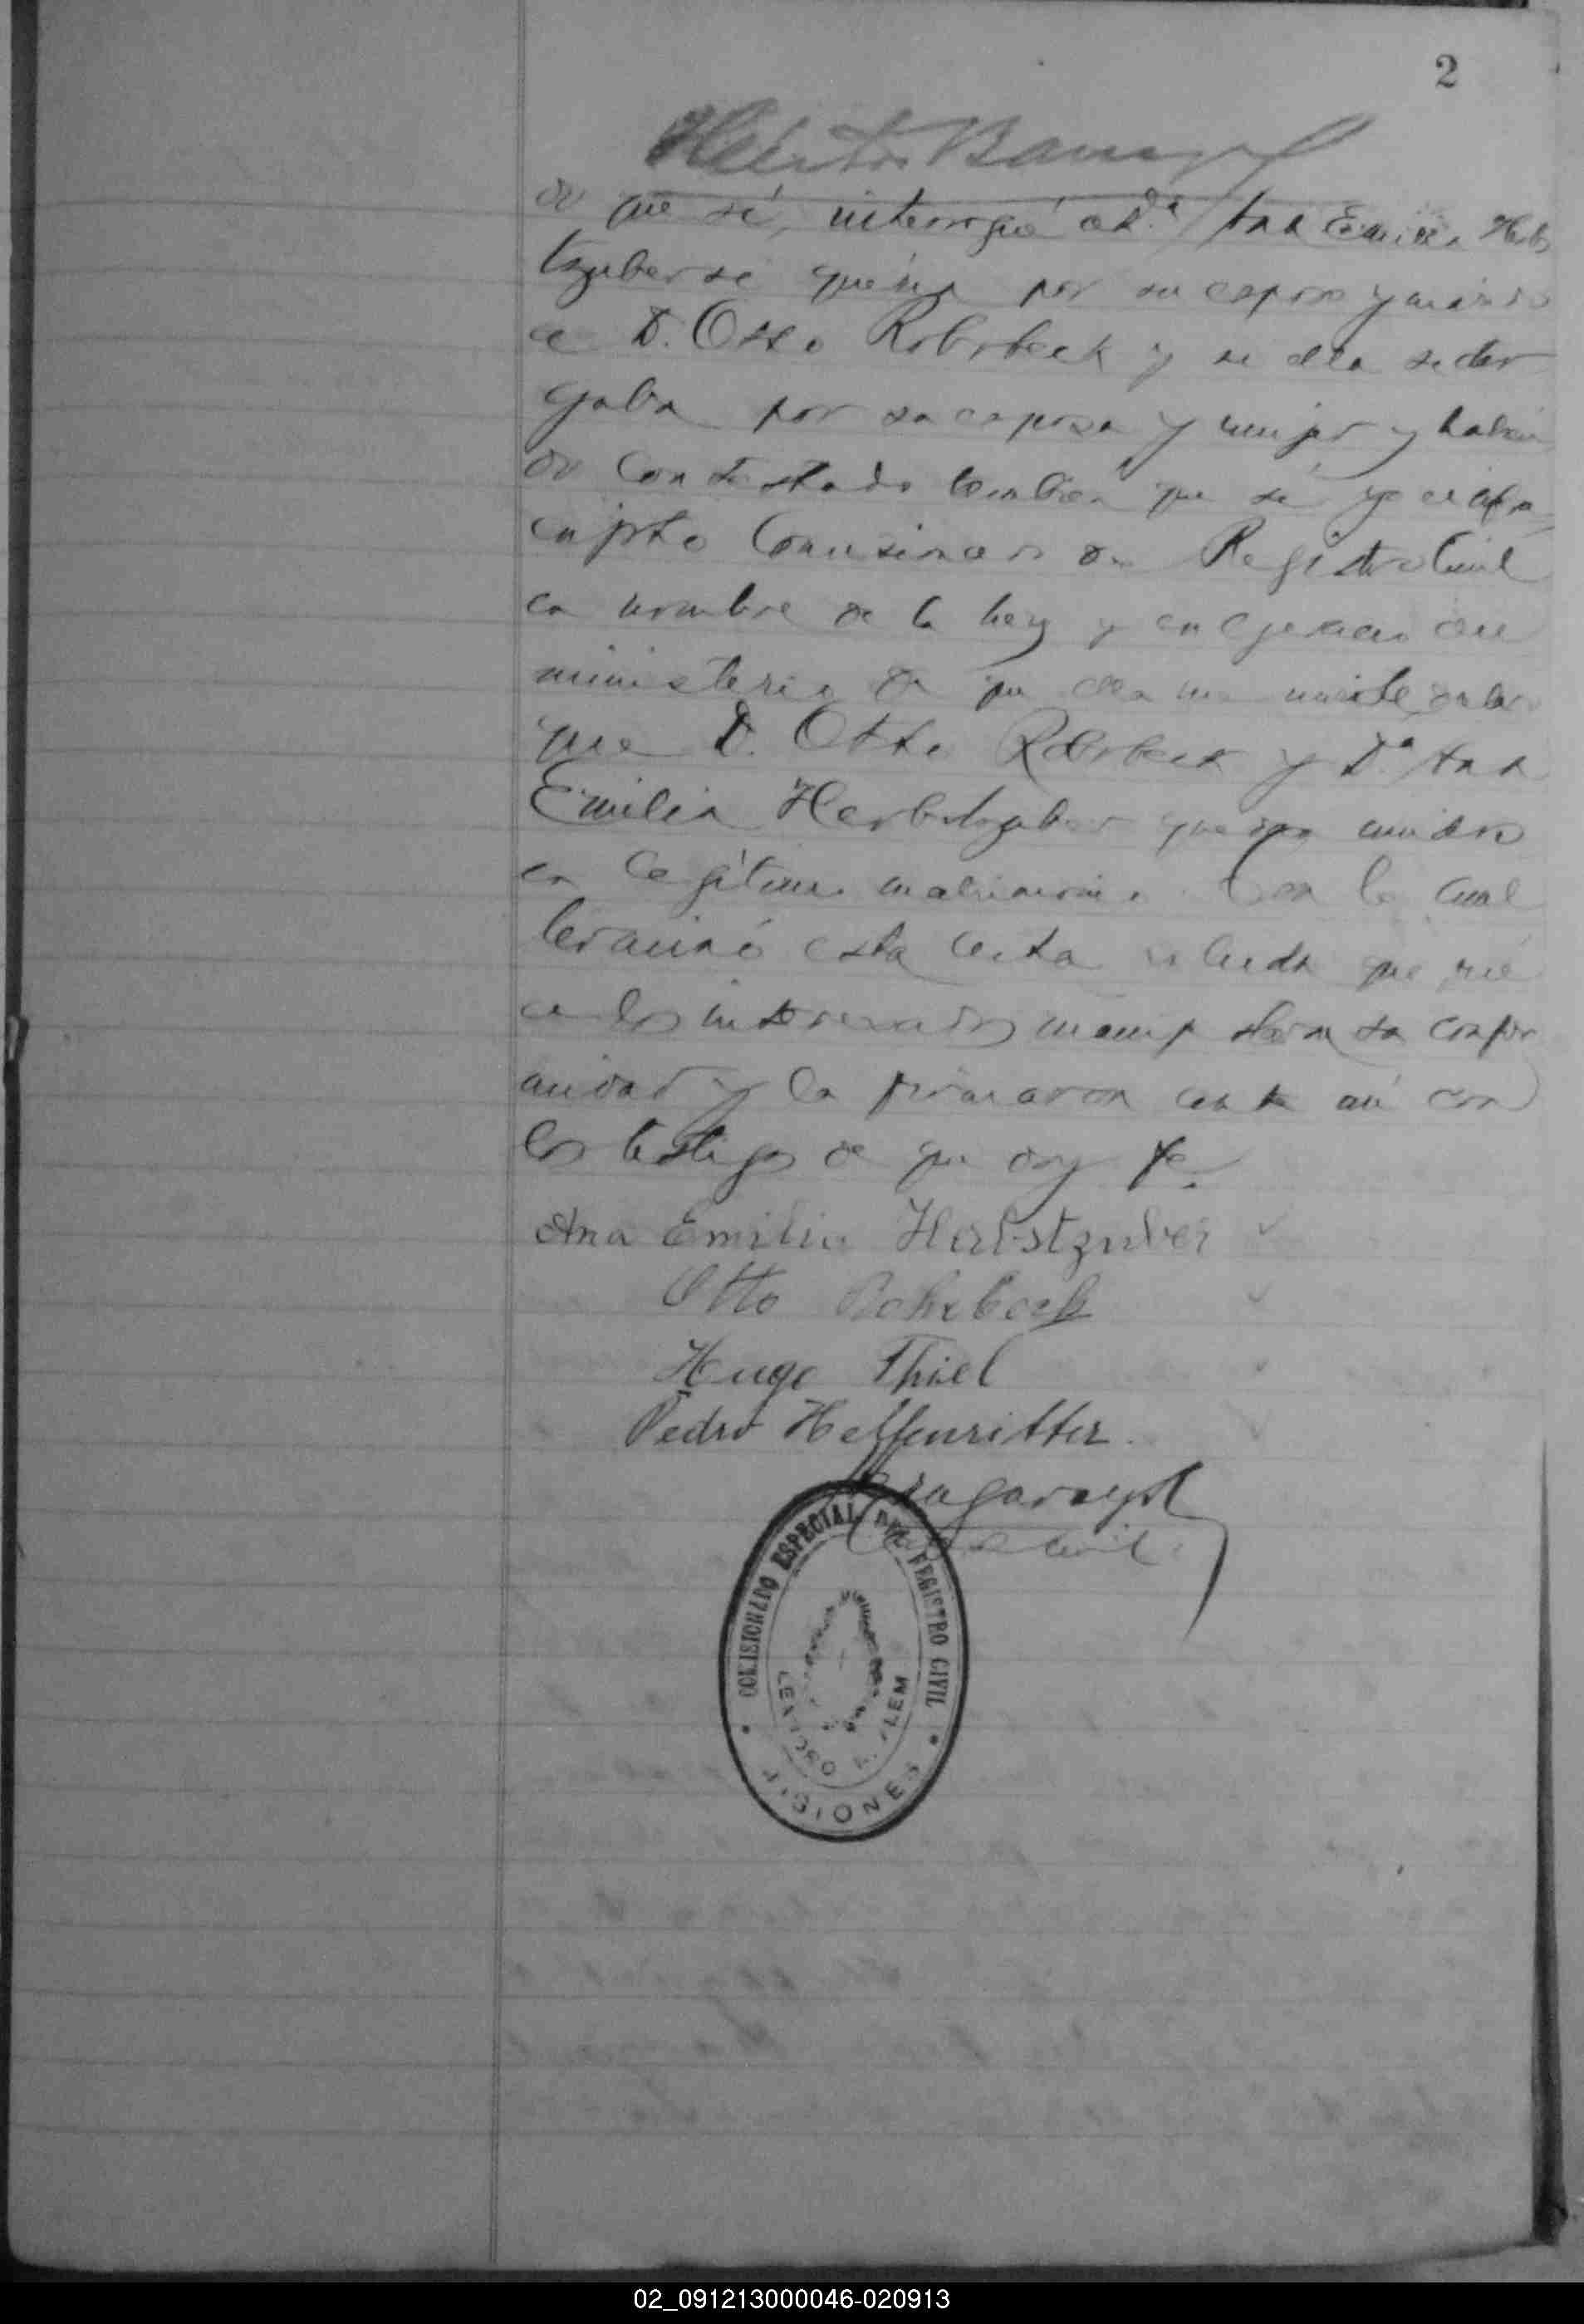 2
do que sí, interrogué a D.ª Ana Emilia Herbs
tzuber si quería por su esposo y marido
a D. Otto Rohrbeck y si ella se otor
gaba por su esposa y mujer y habien
do contestado también que sí yo el infra
cripto Comisionado de Registro Civil
en nombre de la ley y en ejercicio del
ministerio de que ella me inviste, declaro
que D. Otto Rohrbeck y D.ª Ana
Emilia Herbstzuber quedan unidos
en legítimo matrimonio. Con lo cual
terminó esta acta leída que fué
a los interesados manifestaron su confor
midad y la firmaron ante mí con
los testigos de que doy fe.
Ana Emilia Herbstzuber
Otto Rohrbeck
Hugo Thiel
Pedro Heffenritter.
COMISIONADO ESPECIAL DEL REGISTRO CIVIL
LEANDRO N. ALEM
MISIONES
02_091213000046-020913